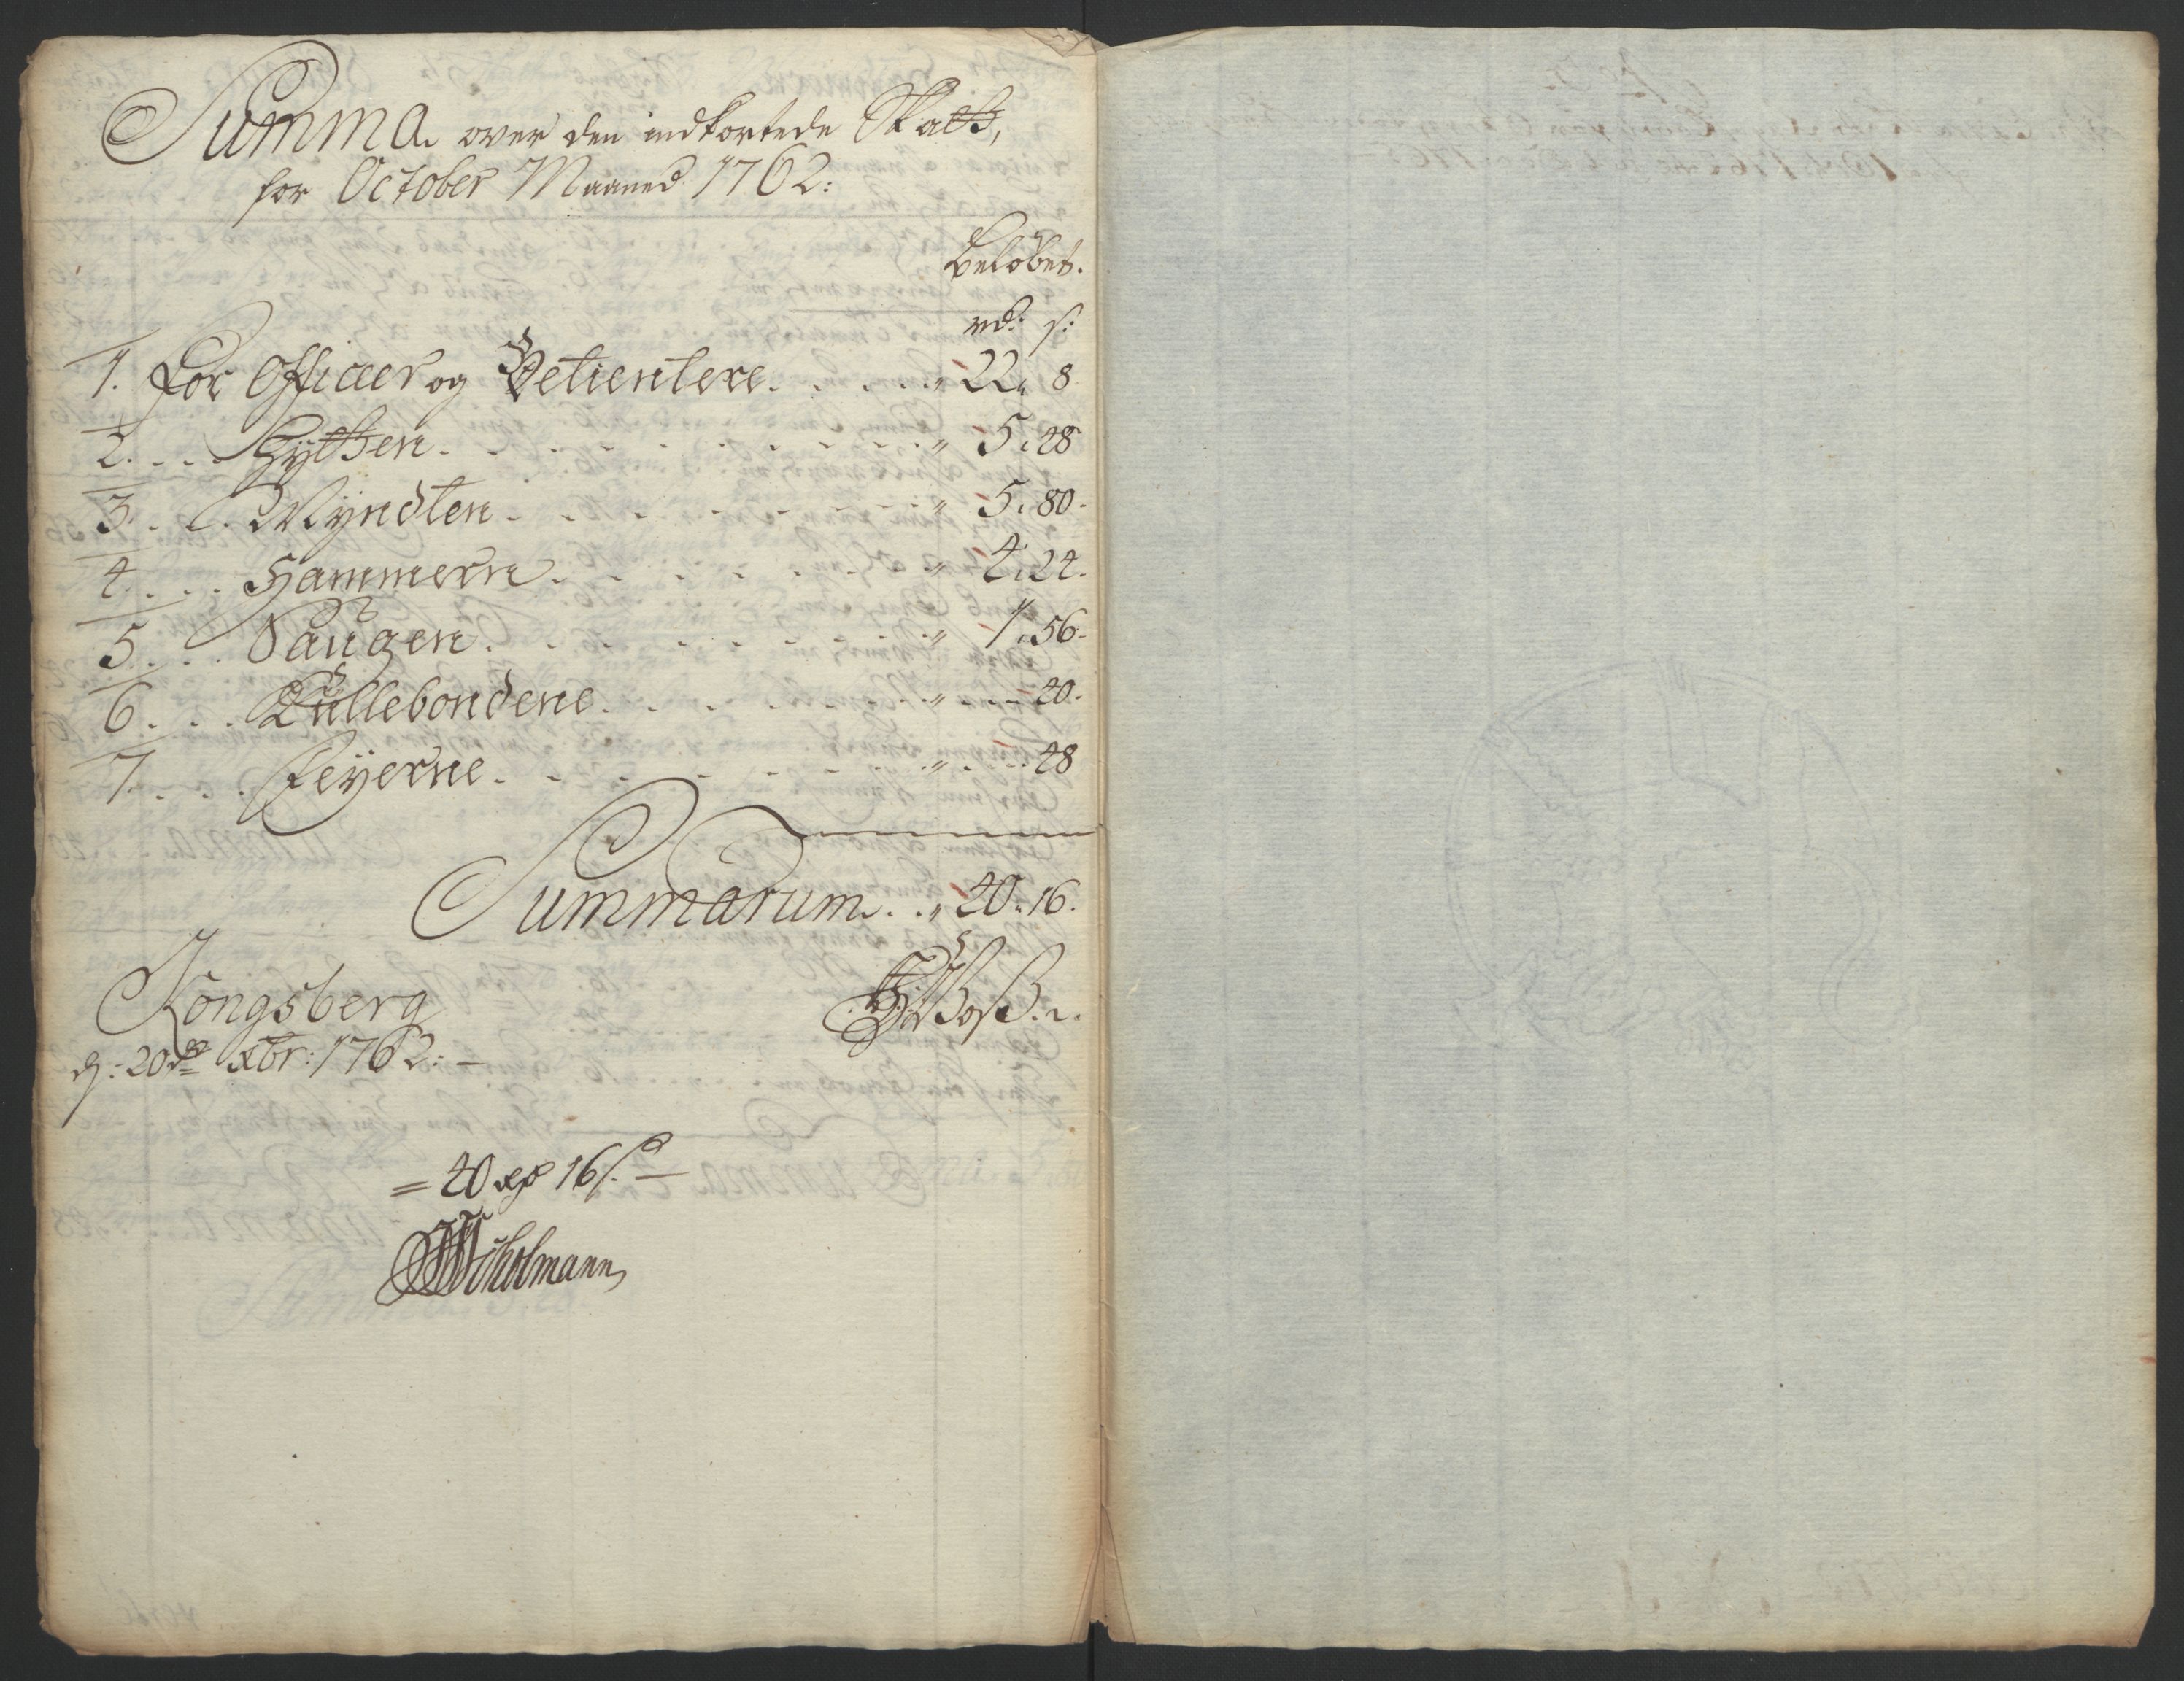 Summa over den indkortede Skatt,
for October Maaned 1762:
Beløbet.
rd: s:
1. For Officier og Betientere . . . . . " 22 " 8
2. . . . Hytten . . . . . . . . . . " 5 " 48
3. . . . Myndten . . . . . . . . . " 5 " 80.
4. . . . Hammern . . . . . . . . " 4 " 24.
5. . . . Saugen . . . . . . . . . " 1 " 56.
6. . . . Kullebondene . . . . . . . " . . . 40.
7. . . . Feyerne . . . . . . . . . " . . . 48
Summarum . . " 40 " 16.
Kongsberg
d: 20de Xbr: 1762: —
= 40 rd 16 s. —